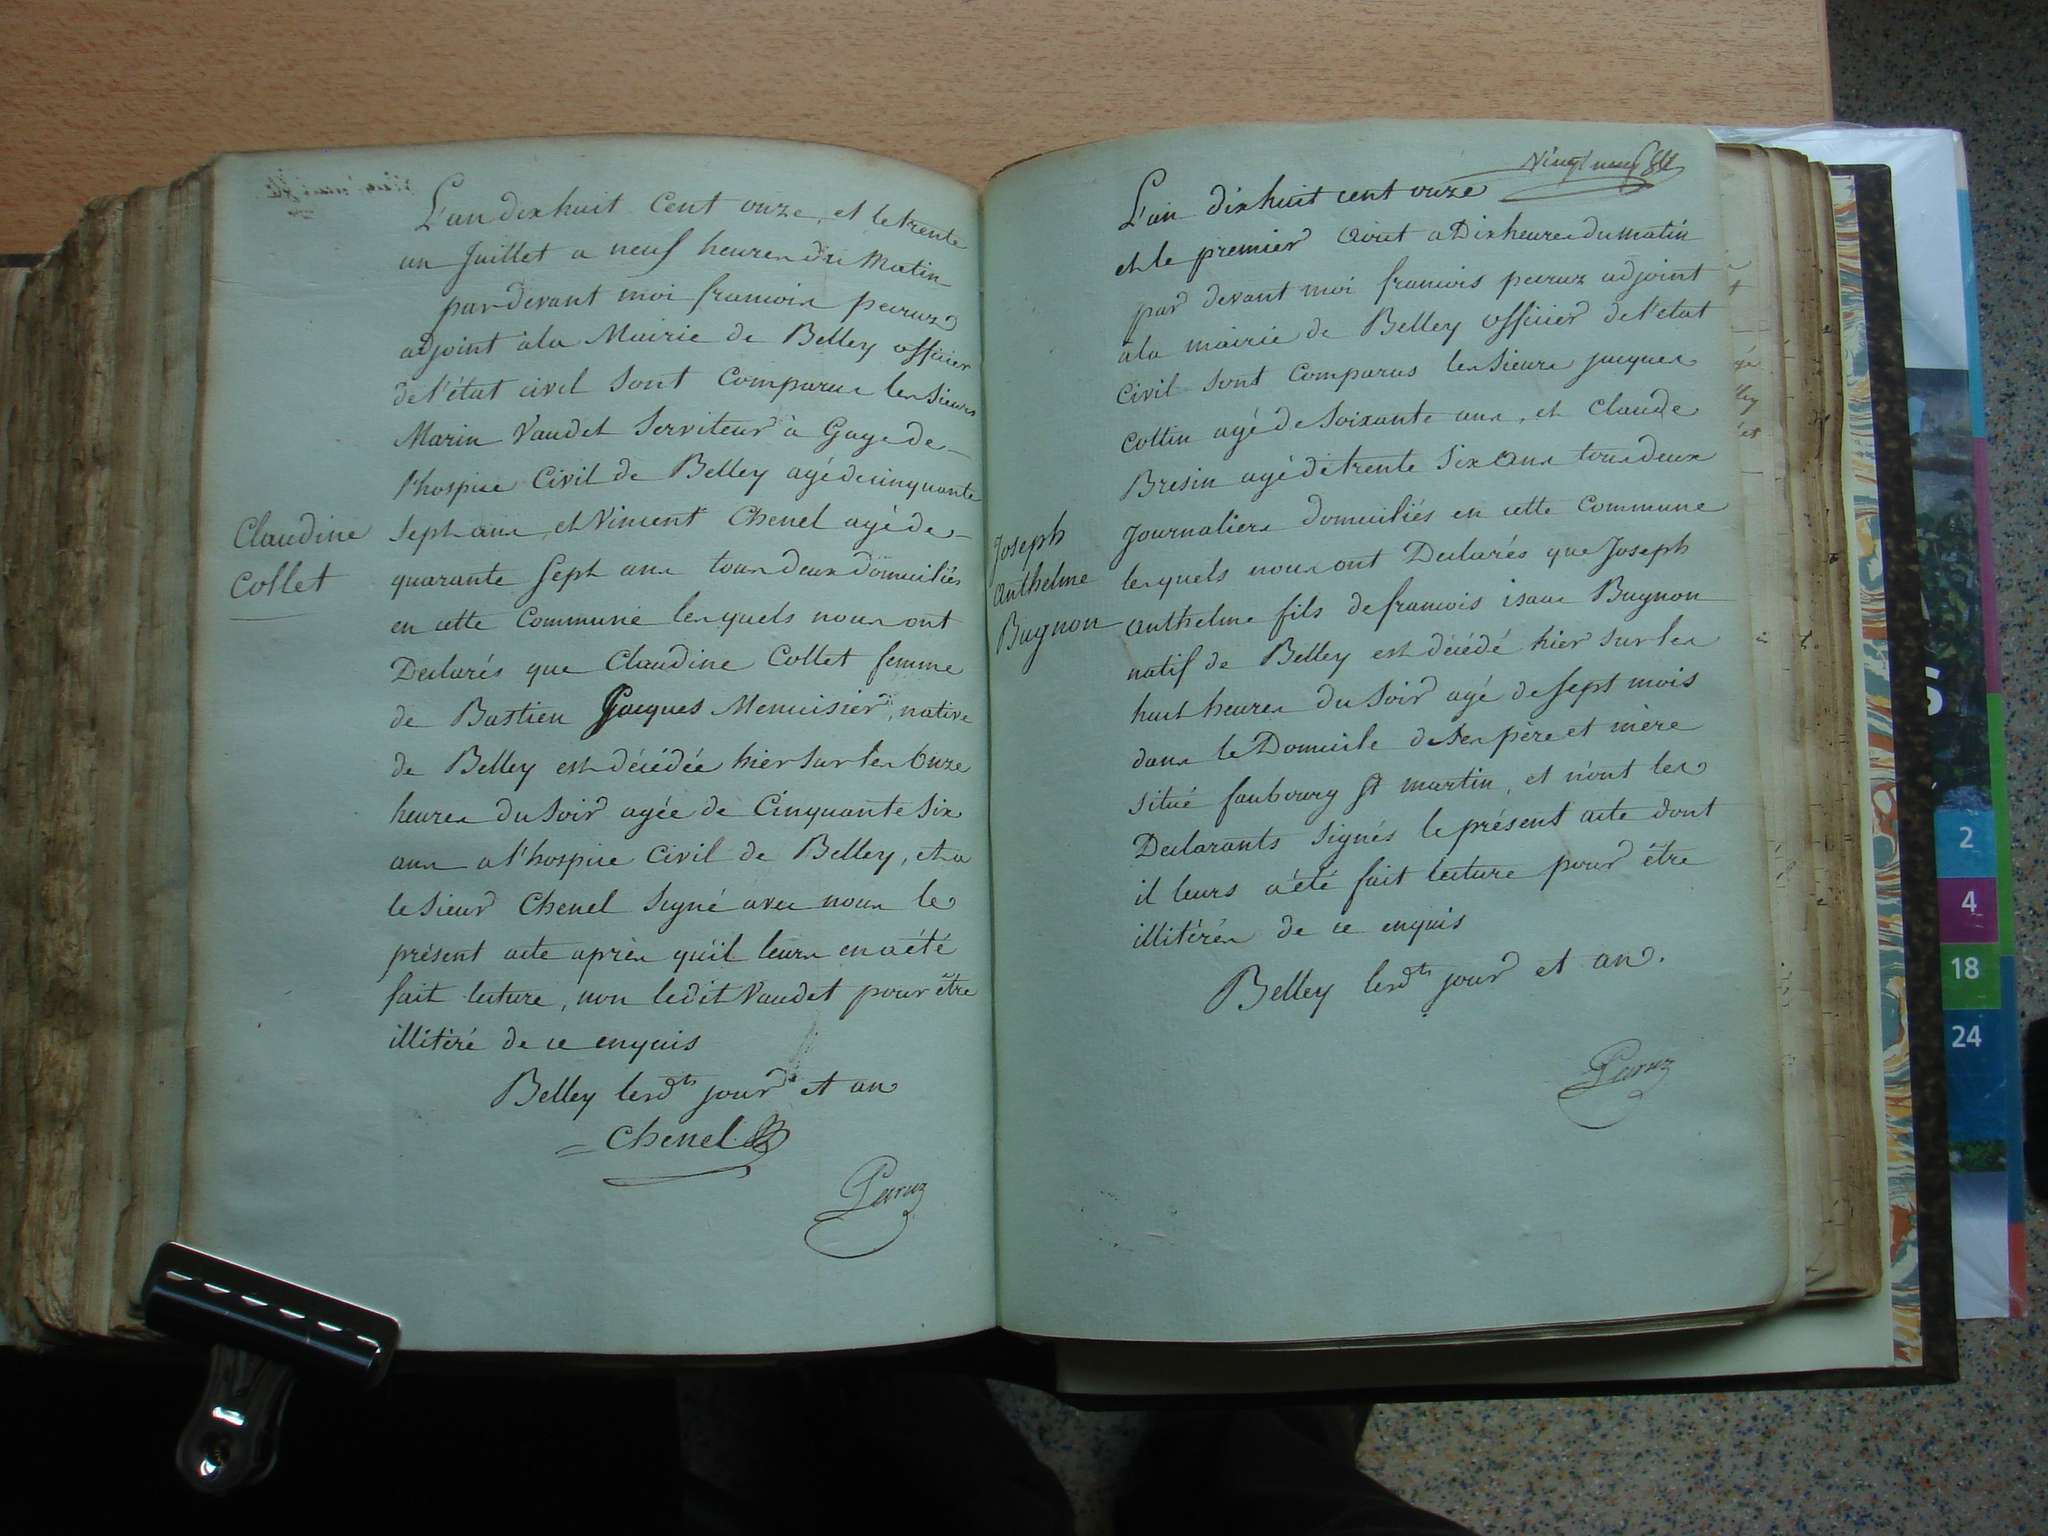 L'an dix huit Cent onze, et le trente
un Juillet a neuf heures du Matin
pardevant moi francois peruz
adjoint à la Mairie de Belley officier
de l'état civil Sont Comparus les Sieurs
Marin Vaudet Serviteur à Gage de
l'hospice Civil de Belley agé de cinquante
Claudine
Collet
Sept ans, et Vincent Chenel agé de
quarante Sept ans tous deux domiciliés
en cette Commune lesquels nous ont
Declarés que Claudine Collet femme
de Bastien Jacques Menuisier, native
de Belley est décédée hier sur les Onze
heures du Soir agée de Cinquante Six
ans a l'hospice Civil de Belley, et a
le Sieur Chenel Signé avec nous le
présent acte après qu'il leurs en a été
fait lecture, non ledit Vaudet pour être
illitéré de ce enquis
Belley lesdts jour et an
Chenel
Peruz
Vingt neuf
L'an dix huit cent onze
et le premier Aout a Dix heures du matin
par devant moi francois peruz adjoint
à la mairie de Belley officier de l'état
Civil Sont Comparus les Sieurs jacques
Collin agé de Soixante ans, et Claude
Bresin agé de trente Six ans tous deux
Joseph
Anthelme
Bugnon
Journaliers domiciliés en cette Commune
lesquels nous ont Declarés que Joseph
Anthelme fils de francois isaac Bugnon
natif de Belley est décédé hier sur les
huit heures du Soir agé de Sept mois
dans le Domicile de ses père et mère
situé faubourg St martin, et n'ont les
Declarants Signés le présent acte dont
il leurs a été fait lecture pour être
illitérés de ce enquis
Belley lesdts jour et an.
Peruz
S
2
4
18
24